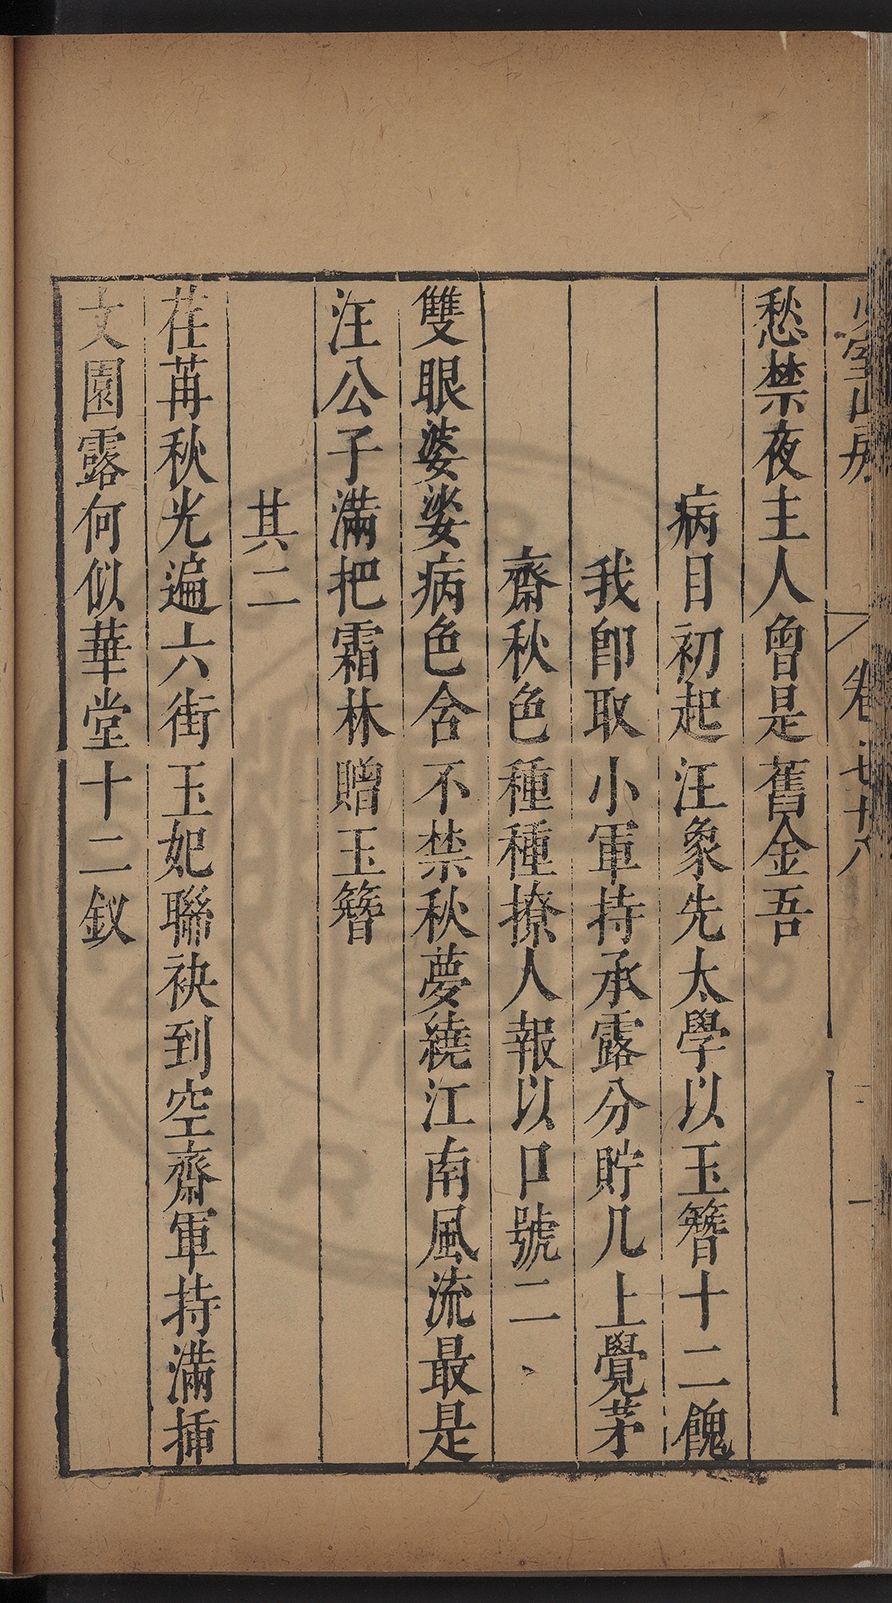 少室山房 卷七十八
愁禁夜主人曾是舊金吾
病目初起汪象先太學以玉簪十二餽
我卽取小軍持承露分貯几上覺茅
齋秋色種種撩人報以口號二
雙眼婆娑病色含不禁秋夢繞江南風流最是
汪公子滿把霜林贈玉簪
其二
荏苒秋光遍六街玉妃聯袂到空齋軍持滿揷
文園露何似華堂十二釵